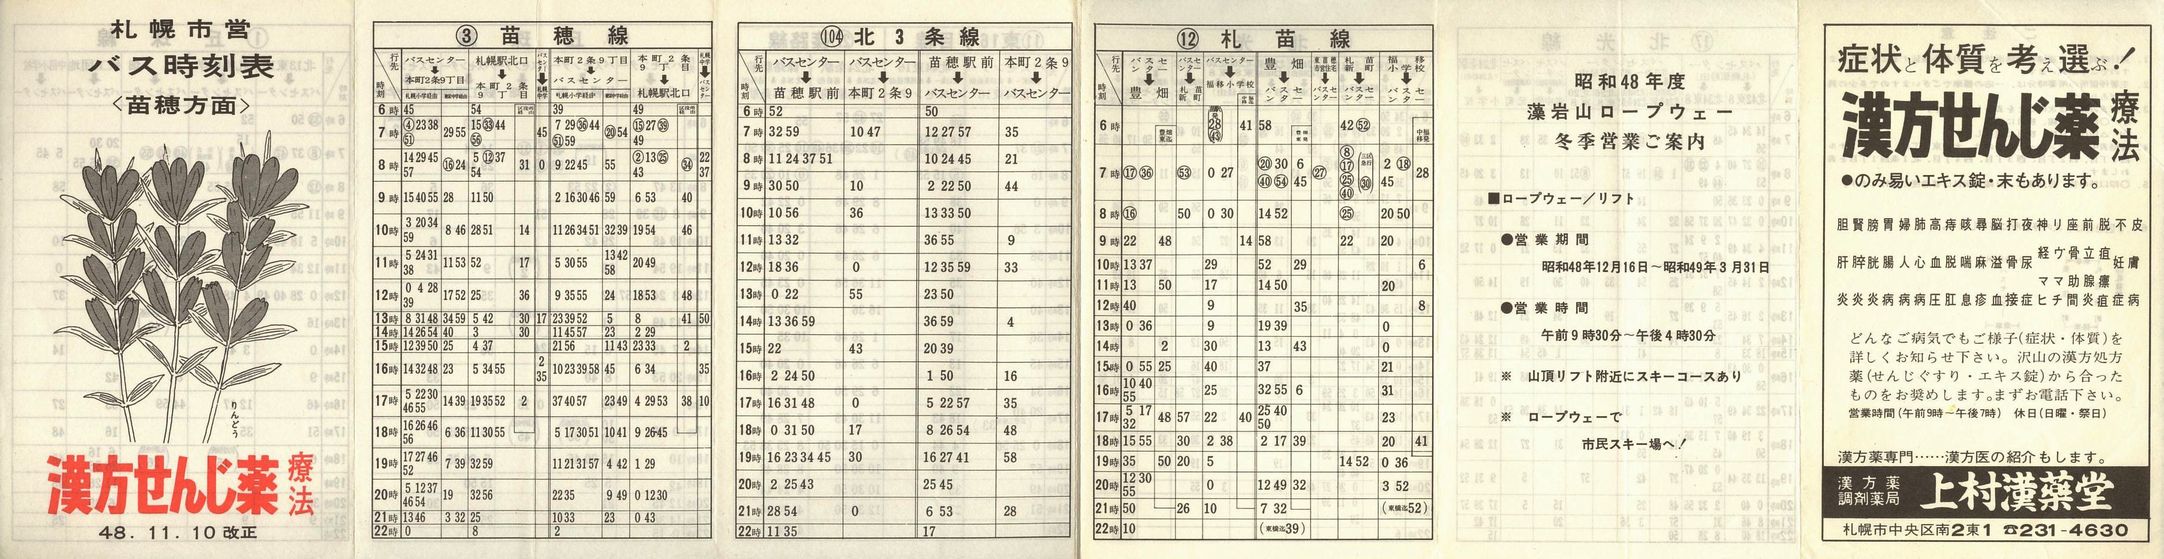 札幌市営
バス時刻表
<苗穂方面>
りんどう
漢方せんじ薬 療法
48. 11. 10 改正
③ 苗穂線
行先 時刻
バスセンター ↓ 本町2条9丁目
札幌駅北口 ↓ 本町2条9丁目
本町2条9丁目 ↓ バスセンター
本町2条9丁目 ↓ 札幌駅北口
6時 45 54 39 49
7時 ④ 23 38 �51 29 55 15 ㉝ 44 �56 45 7 29 ㊱ 44 �51 59 ⑳ 54 ⑮ 27 ㊴ 49
8時 14 29 45 57 ⑯ 24 5 ⑫ 37 54 31 0 9 22 45 55 ② 13 ㉕ 43 ㉞ 22 37
9時 15 40 55 28 11 50 2 16 30 46 59 6 53 40
10時 3 20 34 59 8 46 28 51 14 11 26 34 51 32 39 19 54 46
11時 5 24 31 38 11 53 52 17 5 30 55 13 42 58 20 49
12時 0 4 28 39 17 52 25 36 9 35 55 24 18 53 48
13時 8 31 48 34 59 5 42 30 17 23 39 52 5 8 41 50
14時 14 26 54 40 3 30 11 45 57 23 2 29
15時 12 39 50 25 4 37 21 56 11 43 23 33 2
16時 14 32 48 23 5 34 55 2 35 10 23 39 58 45 6 34 35
17時 5 22 30 46 55 14 39 19 35 52 2 37 40 57 23 49 4 29 53 38 10
18時 16 26 46 56 6 36 11 30 55 5 17 30 51 10 41 9 26 45
19時 17 27 46 52 7 39 32 59 11 21 31 57 4 42 1 29
20時 5 12 37 46 54 19 32 56 22 35 9 49 0 12 30
21時 13 46 3 32 25 10 33 23 0 43
22時 0 8 2
(104) 北3条線
行先 時刻
バスセンター ↓ 苗穂駅前
バスセンター ↓ 本町2条9
苗穂駅前 ↓ バスセンター
本町2条9 ↓ バスセンター
6時 52 50
7時 32 59 10 47 12 27 57 35
8時 11 24 37 51 10 24 45 21
9時 30 50 10 2 22 50 44
10時 10 56 36 13 33 50
11時 13 32 36 55 9
12時 18 36 0 12 35 59 33
13時 0 22 55 23 50
14時 13 36 59 36 59 4
15時 22 43 20 39
16時 2 24 50 1 50 16
17時 16 31 48 0 5 22 57 35
18時 0 31 50 17 8 26 54 48
19時 16 23 34 45 30 16 27 41 58
20時 2 25 43 25 45
21時 28 54 0 6 53 28
22時 11 35 17
⑫ 札苗線
行先 時刻
バスセンター ↓ 豊畑
バスセンター ↓ 札苗新町
バスセンター ↓ 福移小学校
豊畑 ↓ バスセンター
札苗新町 ↓ バスセンター
福移小学校 ↓ バスセンター
6時 41 58 42 �52
7時 ⑰ ㊱ �53 0 27 ⑳ 30 6 ㊵ �54 45 ㉗ ⑧ ⑰ ㉕ ㊵ ㉚ 2 ⑱ 45 28
8時 ⑯ 50 0 30 14 52 ㉕ 20 50
9時 22 48 14 58 22 20
10時 13 37 29 52 29 6
11時 13 50 17 14 50 20
12時 40 9 35 8
13時 0 36 9 19 39 0
14時 2 30 13 43 0
15時 0 55 25 40 37 21
16時 10 40 55 25 32 55 6 31
17時 5 17 32 48 57 22 40 25 40 50 23
18時 15 55 30 2 38 2 17 39 20 41
19時 35 50 20 5 14 52 0 36
20時 12 30 55 0 12 49 32 3 52
21時 50 26 10 7 32 (東橋迄52)
22時 10 (東橋迄39)
昭和48年度
藻岩山ロープウェー
冬季営業ご案内
■ロープウェー/リフト
●営業期間
昭和48年12月16日~昭和49年3月31日
●営業時間
午前9時30分~午後4時30分
※ 山頂リフト附近にスキーコースあり
※ ロープウェーで
市民スキー場へ!
症状と体質を考え選ぶ!
漢方せんじ薬 療法
●のみ易いエキス錠・末もあります。
胆腎膀胃婦肺高痔咳蕁脳打夜神リ座前脱不皮
肝膵胱腸人心血脱喘麻溢骨尿経ウ骨立疽妊膚
ママ助腺癰
炎炎炎病病病圧肛息疹血接症ヒチ間炎疽症病
どんなご病気でもご様子(症状・体質)を
詳しくお知らせ下さい。沢山の漢方処方
薬(せんじぐすり・エキス錠)から合った
ものをお奨めします。まずお電話下さい。
営業時間(午前9時~午後7時) 休日(日曜・祭日)
漢方薬専門……漢方医の紹介もします。
漢方薬調剤薬局 上村漢薬堂
札幌市中央区南2東1 ☎231-4630